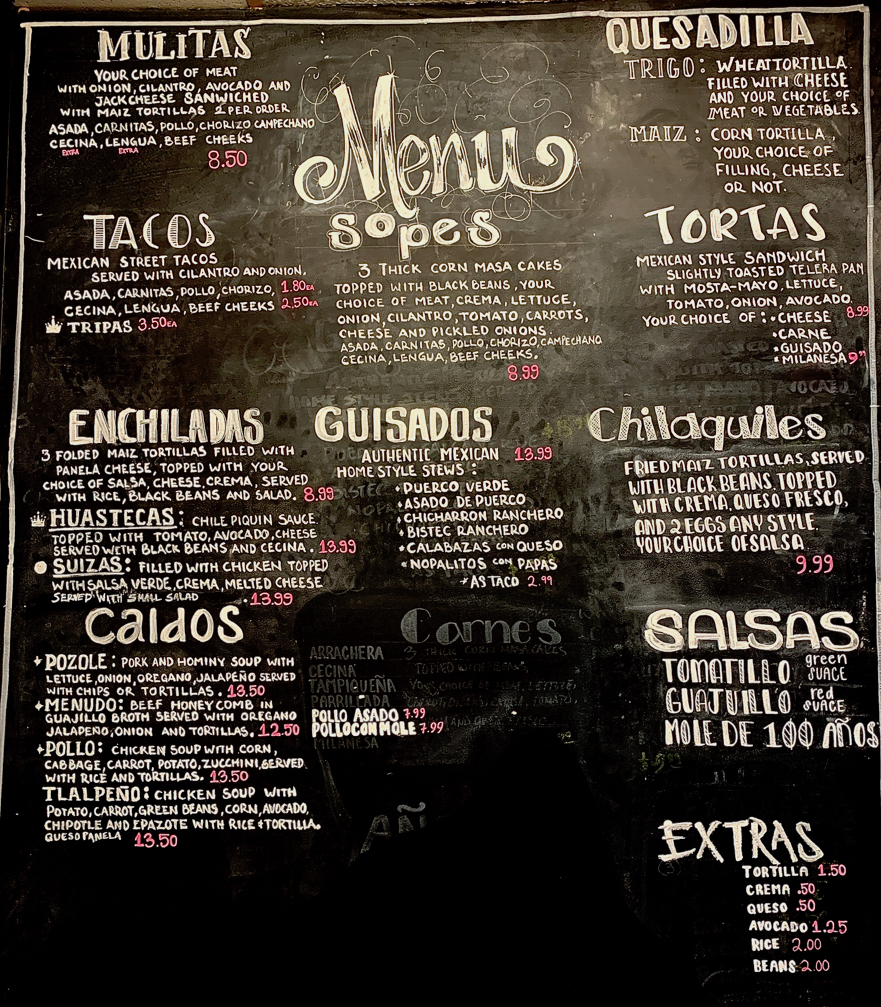 MULITAS
YOUR CHOICE OF MEAT
WITH ONION, CILANTRO, AVOCADO AND
JACK CHEESE SANWICHED
WITH MAIZ TORTILLAS 2 PER ORDER
ASADA, CARNITAS, POLLO, CHORIZO CAMPECHANO
CECINA, LENGUA, BEEF CHEEKS
EXTRA EXTRA
8.50
Menu
QUESADILLA
TRIGO: WHEAT TORTILLA.
FILLED WITH CHEESE
AND YOUR CHOICE OF
MEAT OR VEGETABLES.
MAIZ: CORN TORTILLA,
YOUR CHOICE OF
FILLING, CHEESE
OR NOT.
TACOS
MEXICAN STREET TACOS
SERVED WITH CILANTRO AND ONION.
ASADA, CARNITAS, POLLO, CHORIZO, 1.80EA
CECINA, LENGUA, BEEF CHEEKS 2.50EA
TRIPAS 3.50EA
SOPES
3 THICK CORN MASA CAKES
TOPPED WITH BLACK BEANS, YOUR
CHOICE OF MEAT, CREMA, LETTUCE,
ONION, CILANTRO, TOMATO, CARROTS,
CHEESE AND PICKLED ONIONS.
ASADA, CARNITAS, POLLO, CHORIZO, CAMPECHANO
CECINA, LENGUA, BEEF CHEEKS.
8.99
TORTAS
MEXICAN STYLE SANDWICH
SLIGHTLY TOASTED TELERA PAN
WITH MOSTA-MAYO, LETTUCE,
TOMATO, ONION, AVOCADO.
YOUR CHOICE OF: •CHEESE 8.99
•CARNE
•GUISADO
•MILANESA 9"
ENCHILADAS
3 FOLDED MAIZ TORTILLAS FILLED WITH
PANELA CHEESE, TOPPED WITH YOUR
CHOICE OF SALSA, CHEESE, CREMA, SERVED
WITH RICE, BLACK BEANS AND SALAD. 8.99
HUASTECAS: CHILE PIQUIN SAUCE.
TOPPED WITH TOMATO, AVOCADO, CHEESE
SERVED WITH BLACK BEANS AND CECINA. 13.99
SUIZAS: FILLED WITH CHICKEN TOPPED
WITH SALSA VERDE, CREMA, MELTED CHEESE
SERVED WITH SMALL SALAD 13.99
GUISADOS
AUTHENTIC MEXICAN 13.99
HOME STYLE STEWS:
•PUERCO VERDE
•ASADO DE PUERCO
•CHICHARRON RANCHERO
•BISTEC RANCHERO
•CALABAZAS CON QUESO
•NOPALITOS CON PAPAS
+AS TACO 2.99
Chilaquiles
FRIED MAIZ TORTILLAS, SERVED
WITH BLACK BEANS, TOPPED
WITH CREMA, QUESO FRESCO,
AND 2 EGGS ANY STYLE.
YOUR CHOICE OF SALSA
9.99
Caldos
+POZOLE: PORK AND HOMINY SOUP WITH
LETTUCE, ONION, OREGANO, JALAPEÑO SERVED
WITH CHIPS OR TORTILLAS. 13.50
+MENUDO: BEEF HONEYCOMB IN
GUAJILLO BROTH SERVED WITH OREGANO
JALAPEÑO, ONION AND TORTILLAS. 12.50
+POLLO: CHICKEN SOUP WITH CORN,
CABBAGE, CARROT, POTATO, ZUCCHINI, SERVED
WITH RICE AND TORTILLAS. 13.50
TLALPEÑO: CHICKEN SOUP WITH
POTATO, CARROT, GREEN BEANS, CORN, AVOCADO,
CHIPOTLE AND EPAZOTE WITH RICE + TORTILLA.
QUESO PANELA 13.50
Carnes
ARRACHERA
CECINA
TAMPIQUEÑA
PARRILLADA
POLLO ASADO 7.99
POLLO CON MOLE 7.99
MILANESA
SALSAS
TOMATILLO green SUACE
GUAJILLO red SUACE
MOLE DE 100 AÑOS
EXTRAS
TORTILLA 1.50
CREMA .50
QUESO .50
AVOCADO 1.25
RICE 2.00
BEANS 2.00